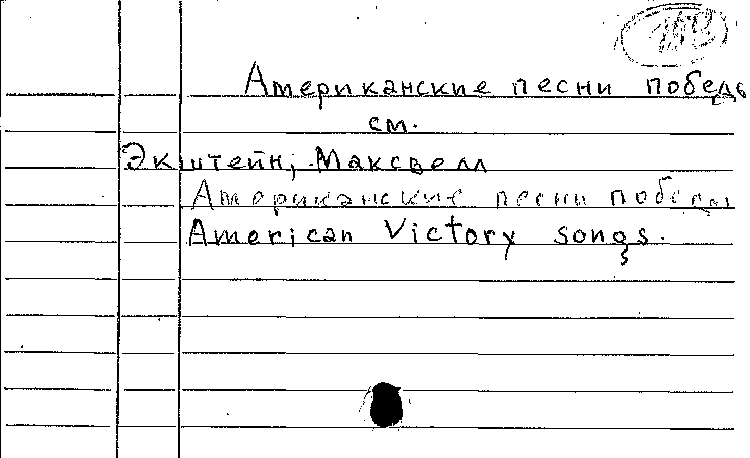 Американские песни победы
см.
Экштейн, Максвелл
Американские песни победы
American Victory songs.